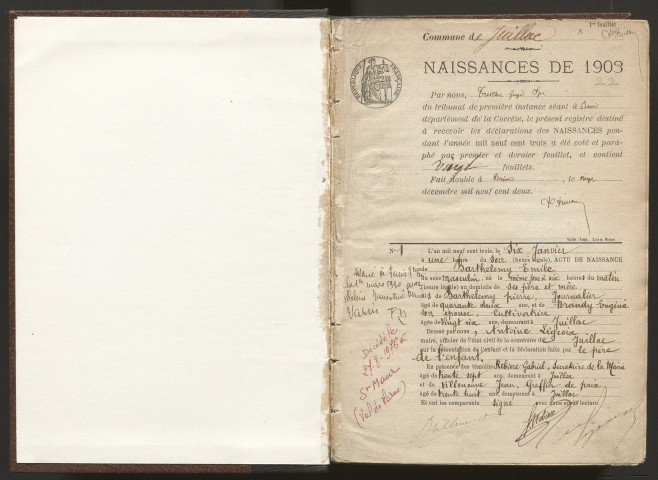 1er feuillet
Commune de Juillac
REPUBLIQUE FRANÇAISE
NAISSANCES DE 1903
22
Par nous,
du tribunal de première instance séant à
département de la Corrèze, le présent registre destiné
à recevoir les déclarations des NAISSANCES pen-
dant l'année mil neuf cent trois a été coté et para-
phé par premier et dernier feuillet, et contient
Vingt feuillets.
Fait double à, le
décembre mil neuf cent deux.
N° 1 L'an mil neuf cent trois, le Six Janvier
à une heure du Soir (heure légale), ACTE DE NAISSANCE
de Barthelemy Emile
du sexe masculin, né le même jour à six heures du matin
(heure légale) au domicile de ses père et mère
de Barthelemy pierre, Journalier
âgé de quarante deux ans, et de Brandy Eugénie
son épouse, Cultivatrice
âgée de vingt six ans, demeurant à Juillac
Dressé par nous, Antoine
maire, officier de l'état-civil de la commune de Juillac
sur la présentation de l'enfant et la déclaration faite par le père
de l'enfant.
En présence des témoins Gabriel, Secrétaire de la Mairie
âgé de trente sept ans, demeurant à Juillac
et de Villemoine Jean, Greffier de paix
âgé de trente huit ans, demeurant à Juillac
Et ont les comparants signé avec nous après lecture.
mars 1930 avec
Varin
Décédé le
27-8-1976 à
St Maur
(Val de Marne)